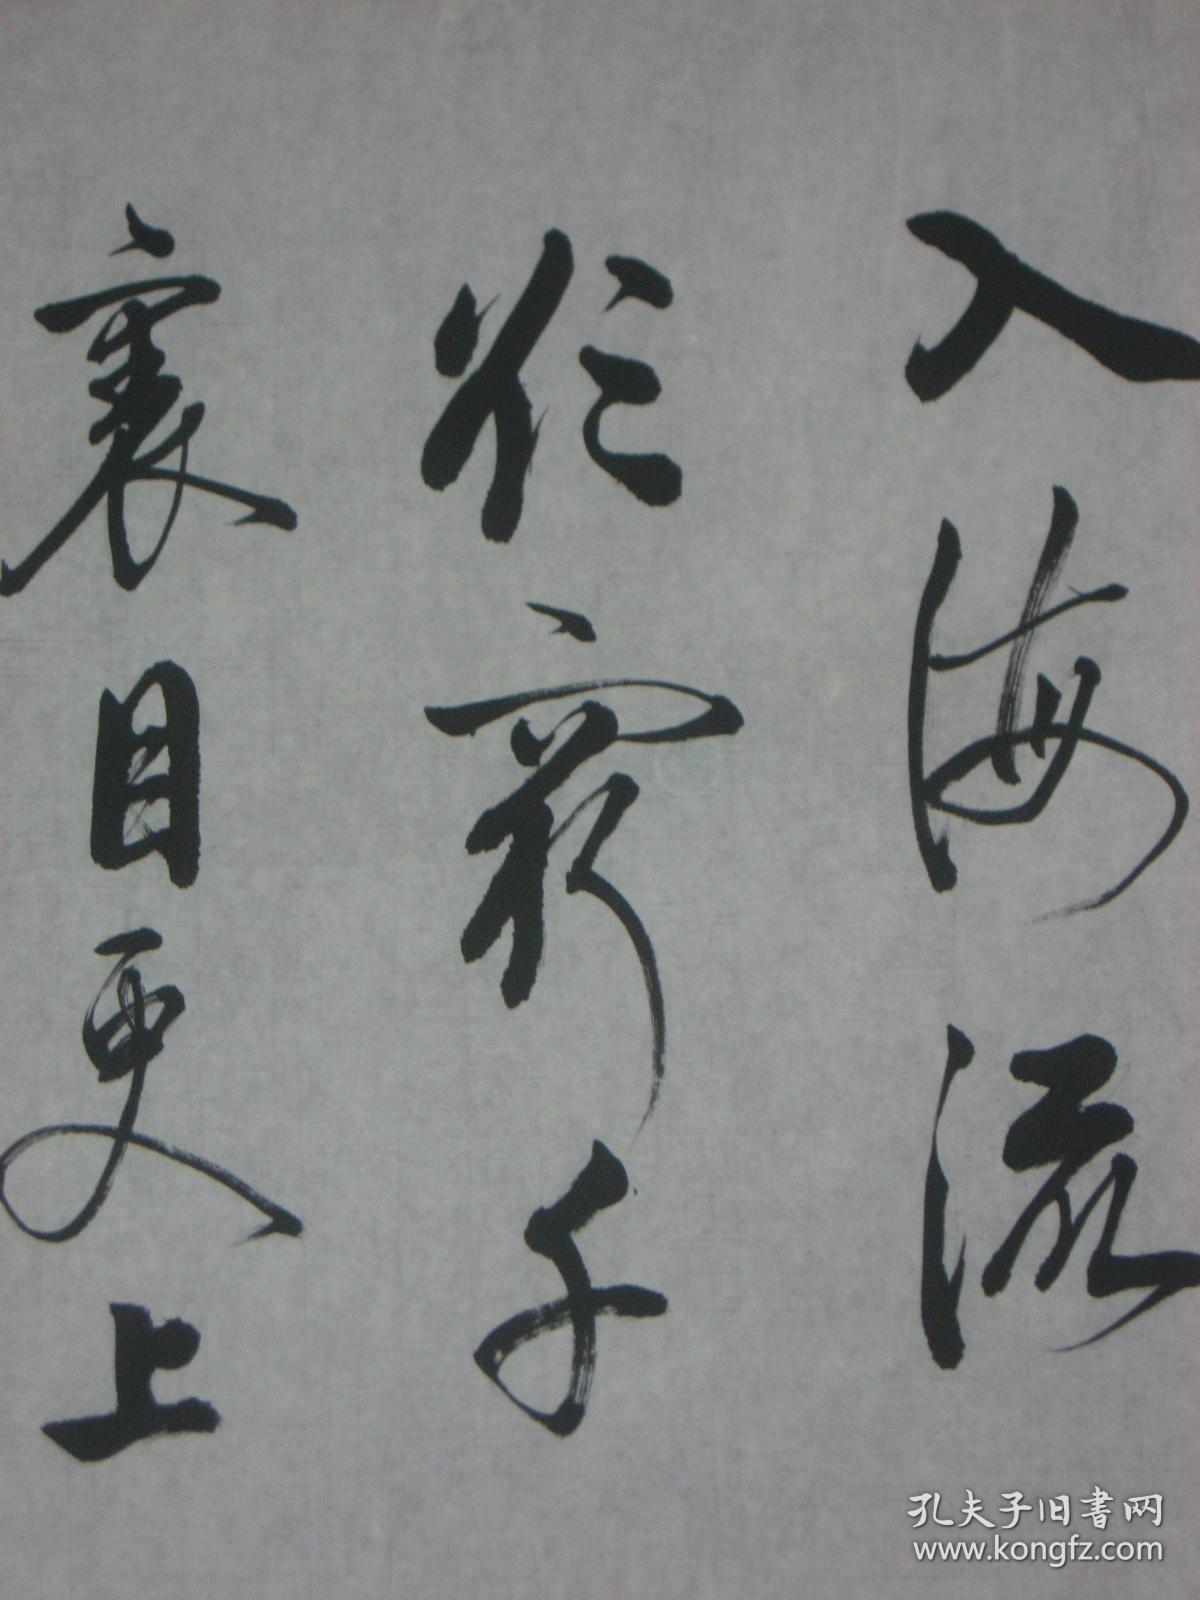 入海流
欲窮千
裏目更上
孔夫子旧書网
www.kongfz.com